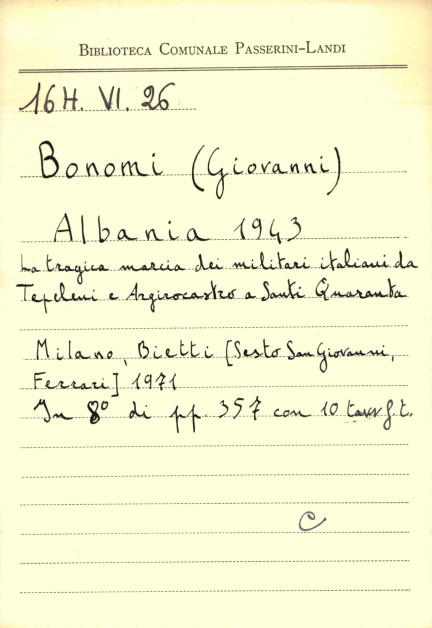 BIBLIOTECA COMUNALE PASSERINI-LANDI
16 H. VI. 26
Bonomi (Giovanni)
Albania 1943
La tragica marcia dei militari italiani da
Tepeleni e Argirocastro a Santi Quaranta
Milano, Bietti [Sesto San Giovanni,
Ferrari] 1971
In 8° di pp. 357 con 10 tavv f.t.
C